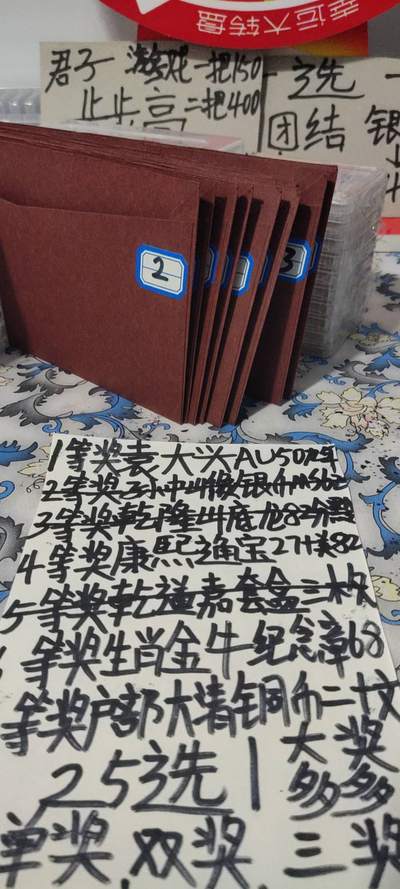 幸运大转盘
君子 游戏一把150
止步高二把400
选一
团结 银
2
3
1等奖袁大头AU50
2等奖孙中山像银币MS62
3等奖乾隆山底龙82分
4等奖康熙通宝27 82
5等奖乾道嘉套盒三枚
等奖生肖金牛纪念章68
等奖户部大清铜币二十文
25选1 大奖多多
单奖 双奖 三奖